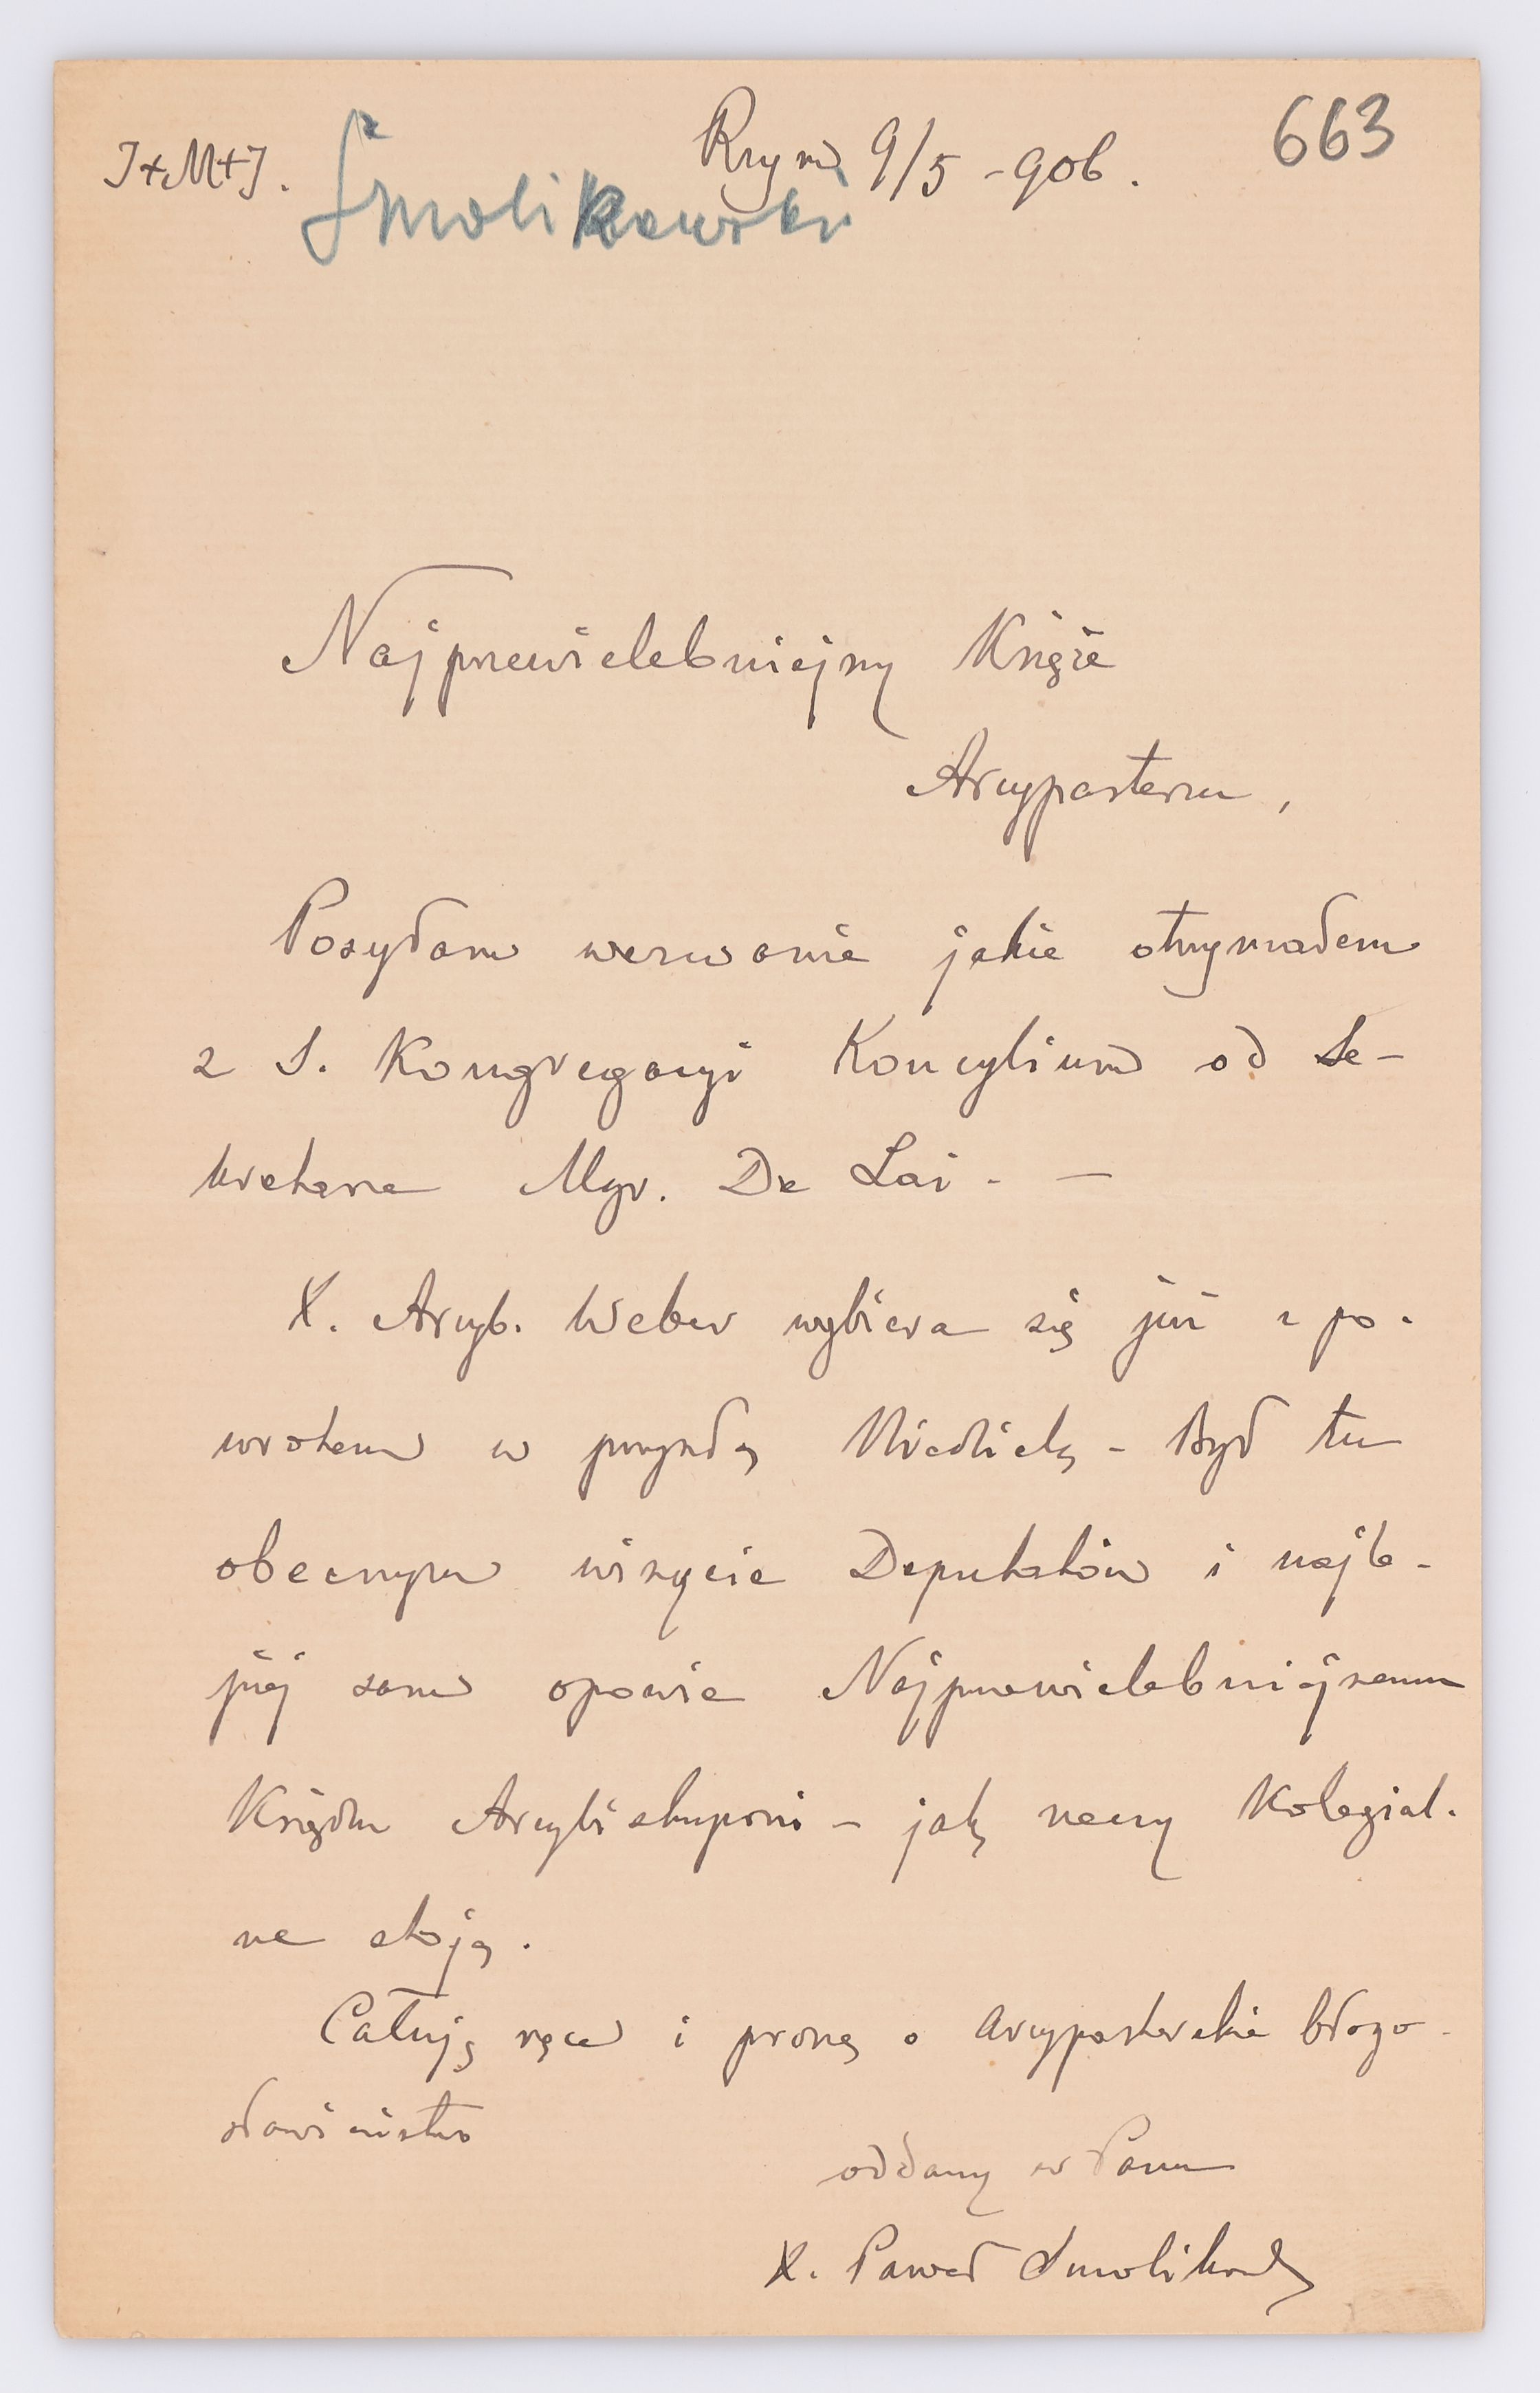 J+M+J.
Rzym 9/5 - 906.
663
X Smolikowski
Najprzewielebniejszy Księże
Arcypasterzu,
Posyłam wezwanie jakie otrzymałem
z S. Kongregacyi Koncylium od Se-
kretarza Mgr. De Lai. —
X. Arcyb. Weber wybiera się już z po-
wrotem w przyszłą Niedzielę - Był tu
obecnym wizycie Deputatów i najle-
piej sam opowie Najprzewielebniejszemu
Księdzu Arcybiskupowi - jak rzeczy Kolegial-
ne stoją.
Całuję ręce i proszę o arcypasterskie błogo-
sławieństwo
oddany w Panu
X. Paweł Smolikowski